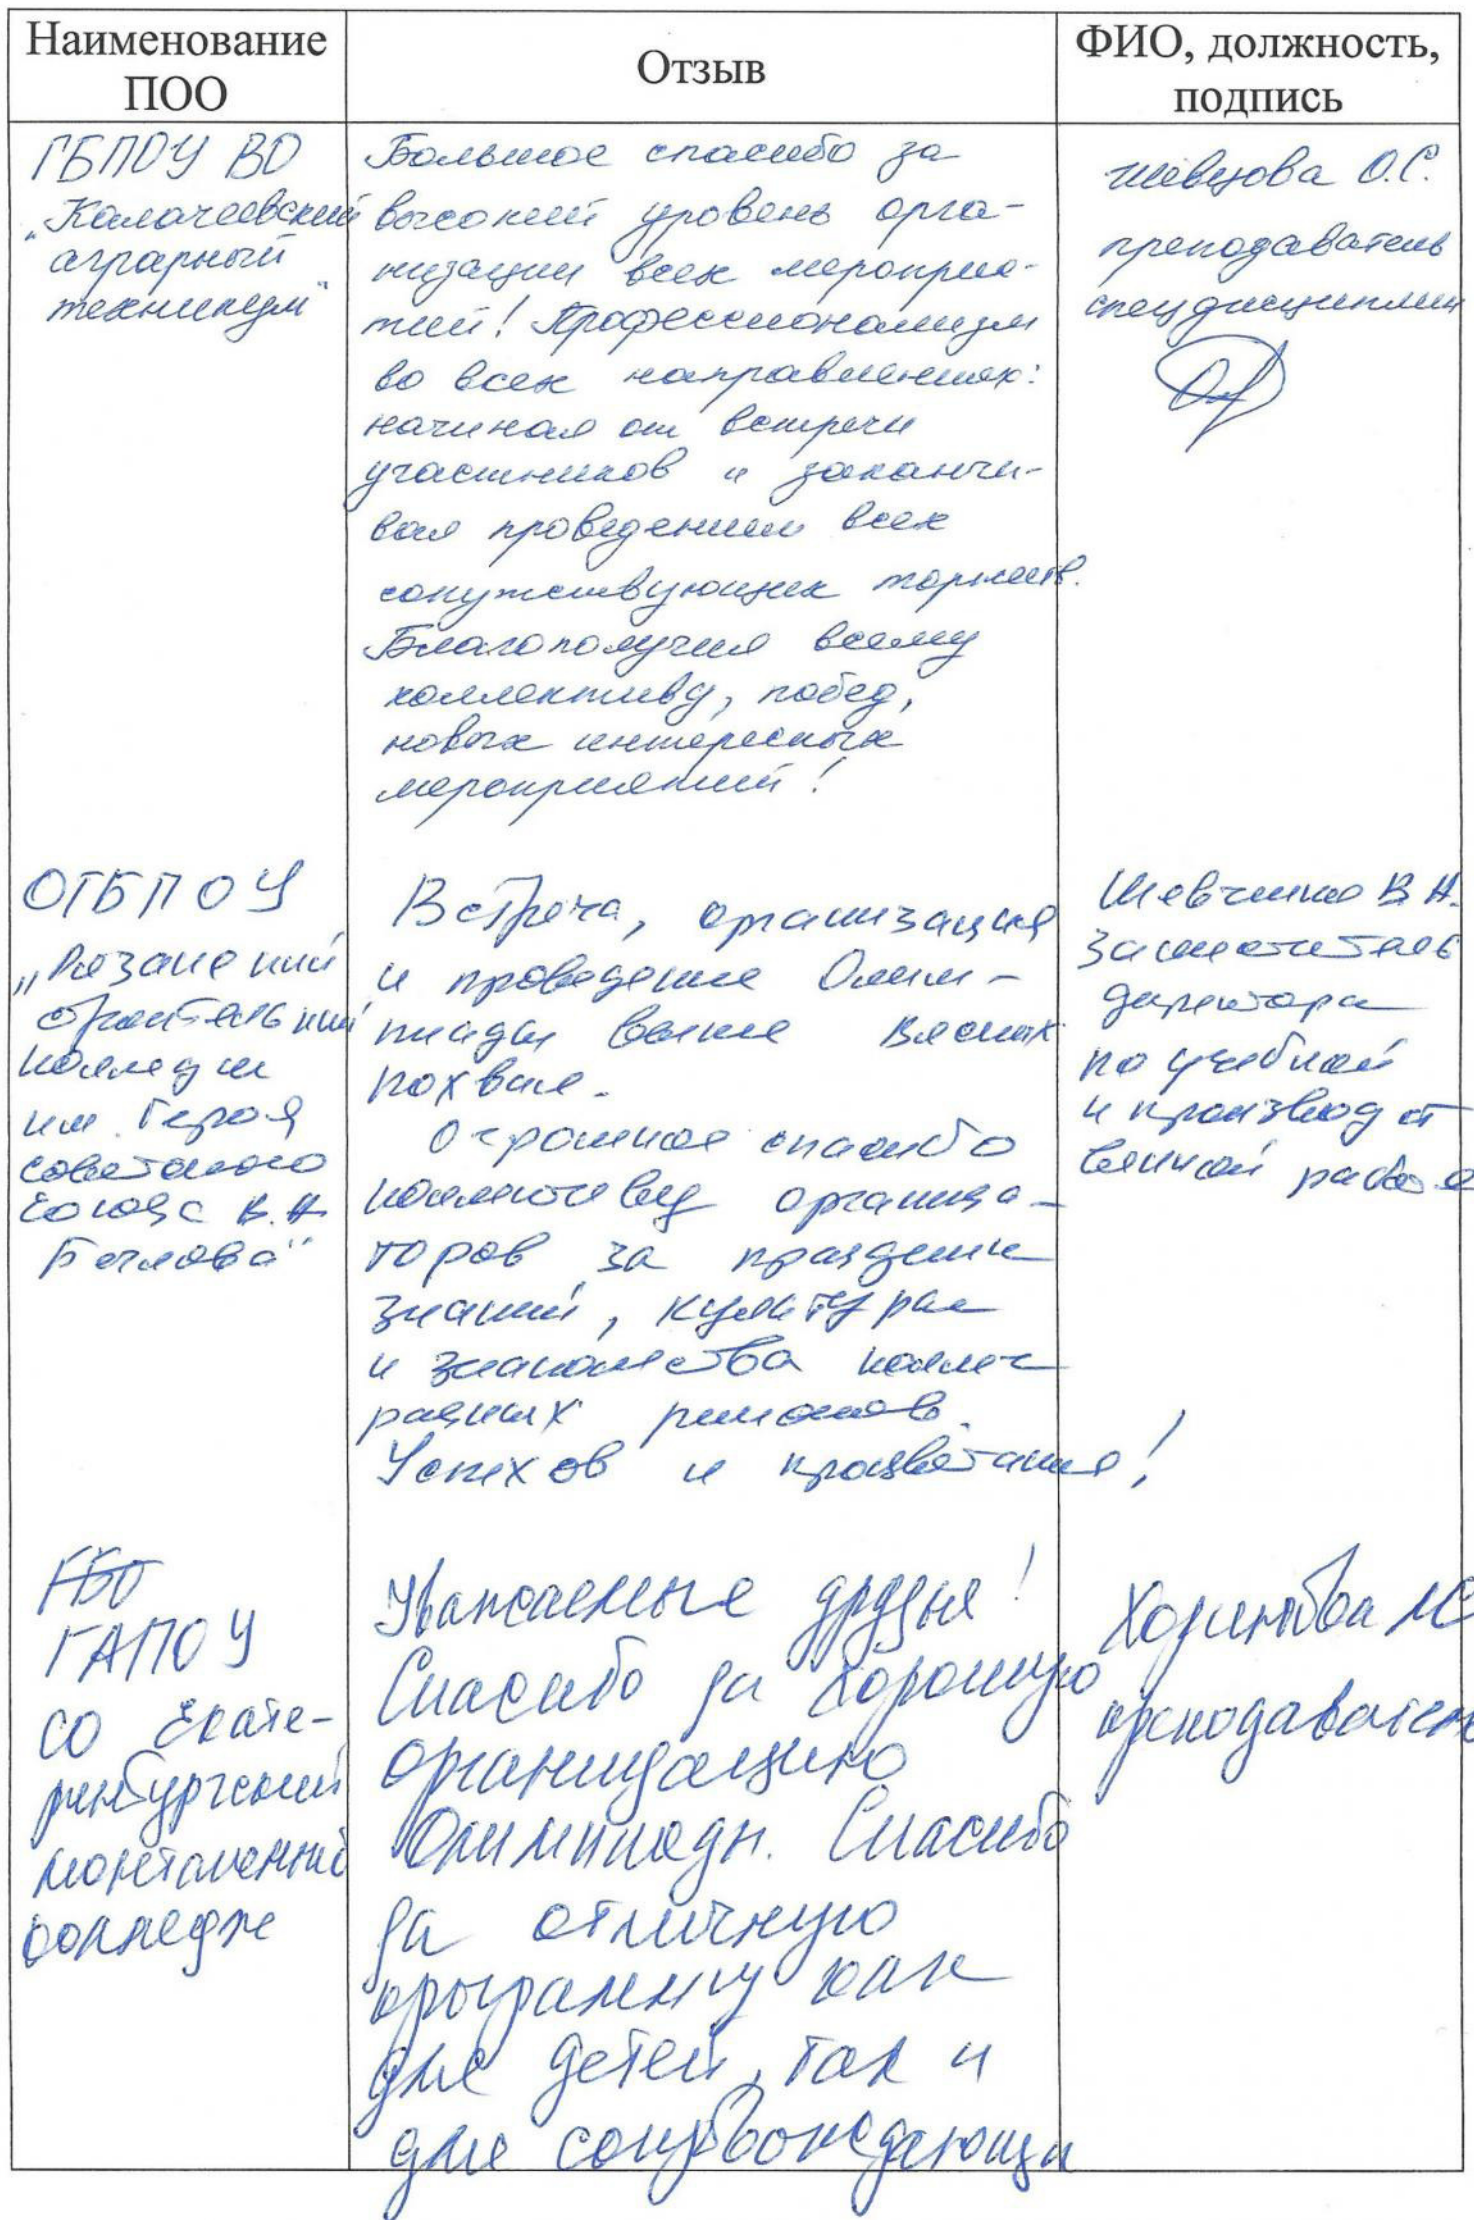 Наименование
ПОО
Отзыв
ФИО, должность,
подпись
ГБПОУ ВО
"Калачеевский
аграрный
техникум"
Большое спасибо за
высокий уровень орга-
низации всех мероприя-
тий! Профессионализм
во всех направлениях:
начиная от встречи
участников и заканчи-
вая проведением всех
сопутствующих торжеств.
Благополучия всему
коллективу, побед,
новых интересных
мероприятий!
Шевцова О.С.
преподаватель
спецдисциплин
ОГБПОУ
„Рязанский
строительный
колледж
им. Героя
Советского
Союза В.А.
Беглова"
Встреча, организация
и проведение Олим-
пиады выше всяких
похвал.
Огромное спасибо
коллективу организа-
торов за праздник
знаний, культуры
и знакомства коллег
разных регионов.
Успехов и процветания!
Шевченко В.А.
Заместитель
директора
по учебной
и производст
венной работе
ГБО
ГАПОУ
СО Екате-
ринбургский
монтажный
колледж
Уважаемые друзья!
Спасибо за хорошую
организацию
Олимпиады. Спасибо
за отличную
программу как
для детей, так и
для сопровождающи
преподаватель